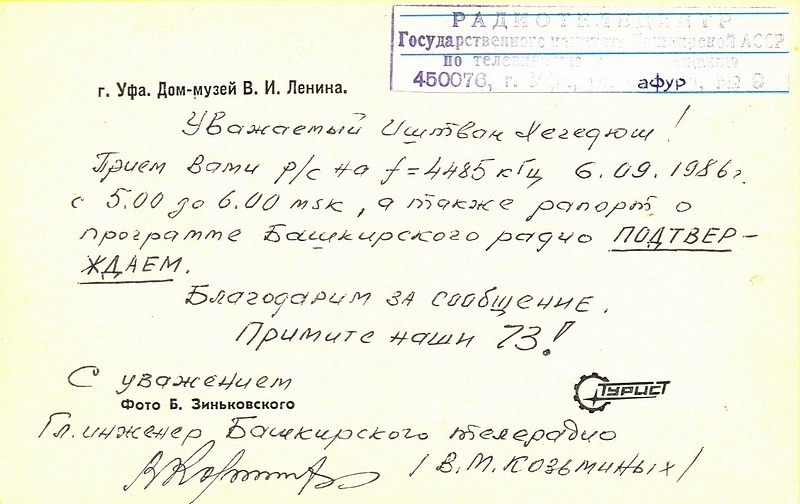 РАДИОТЕЛЕЦЕНТР
Государственного комитета Башкирской АССР
по телевидению и
450076, г. Уфа, ул. Гафури, № 9
г. Уфа. Дом-музей В. И. Ленина.
Уважаемый Иштван Хегедюш!
Прием Вами р/с на f=4485 кГц 6.09.1986г.
с 5.00 до 6.00 мsк, а также рапорт о
программе Башкирского радио ПОДТВЕР-
ЖДАЕМ.
Благодарим за сообщение.
Примите наши 73!
С уважением
ТУРИСТ
Фото Б. Зиньковского
Гл. инженер Башкирского телерадио
/В.М. Козьминых/